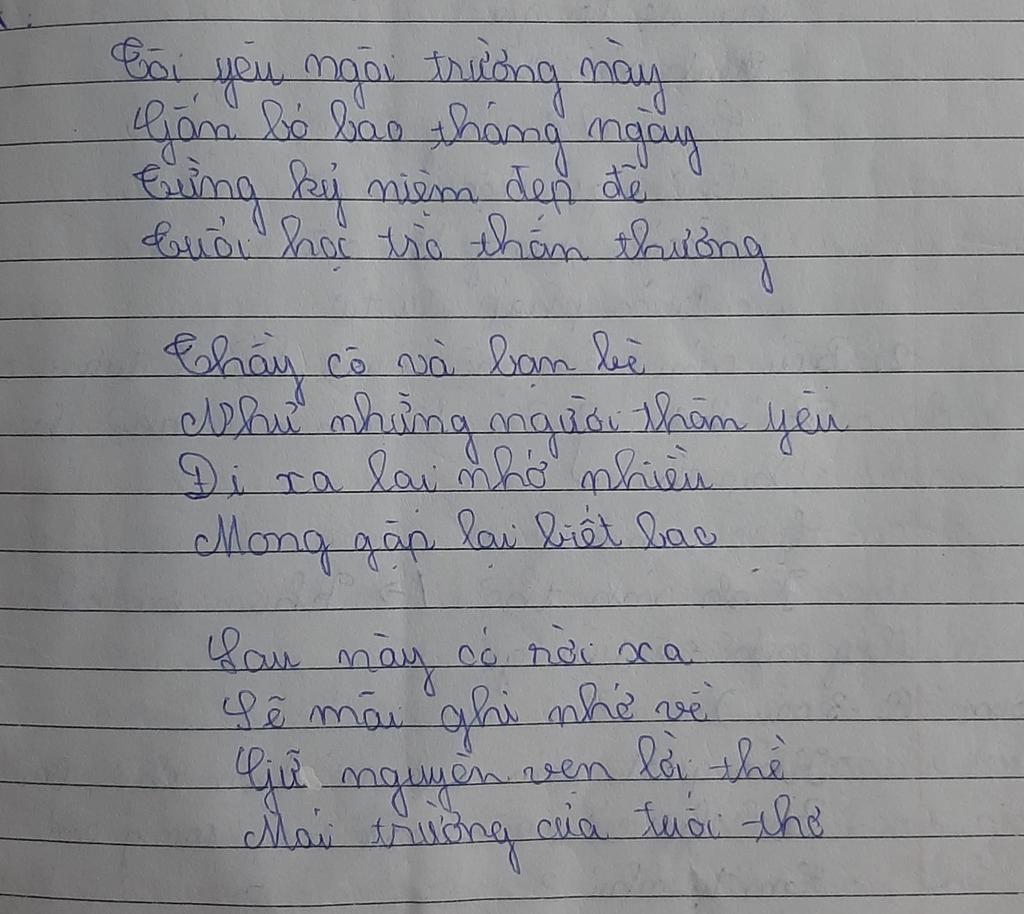 Tôi yêu ngôi trường này
Gắn bó bao tháng ngày
Từng kỷ niệm đẹp đẽ
Tuổi học trò thân thương
Thầy cô và bạn bè
Như những người thân yêu
Đi xa lại nhớ nhiều
Mong gặp lại biết bao
Sau này có rời xa
Sẽ mãi ghi nhớ về
Giữ nguyên vẹn lời thề
Mái trường của tuổi thơ